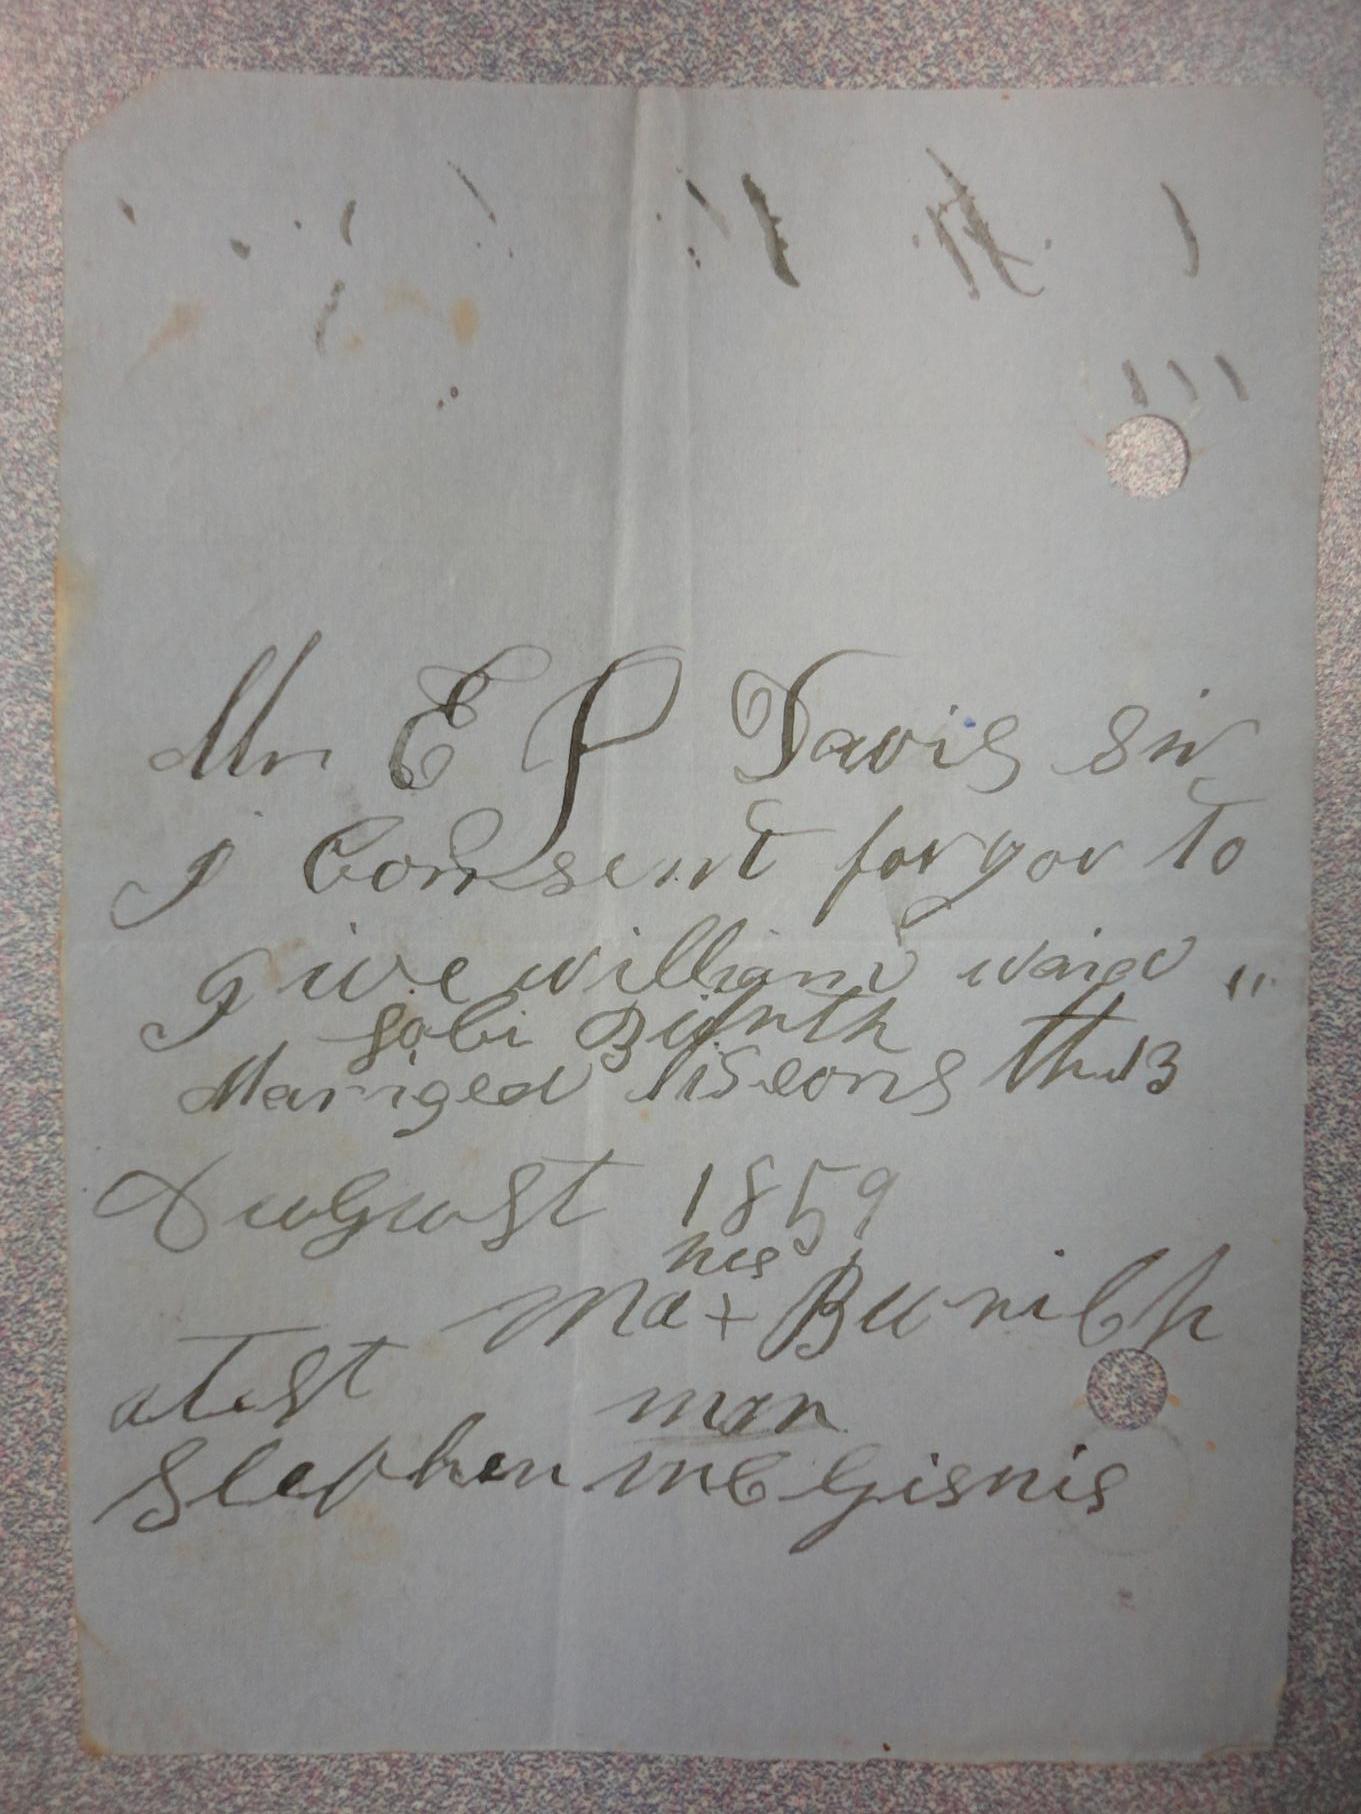 Mr E P Davis Sir
I Consent for you To
give william ward "
Marriged liseons th 13
August 1859
his
Ma + Burnich
atest
Stephen mc Gisnis